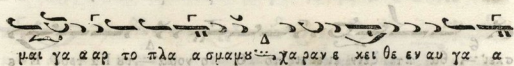 Δ
μαι γα α αρ το πλα α σμα μου χαρανε κει θε εν αυ γα α